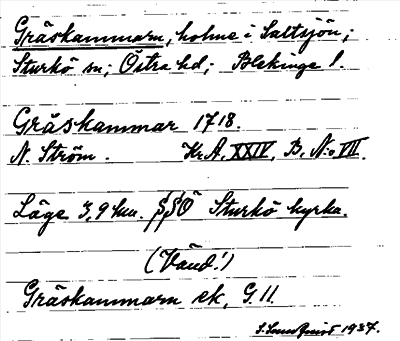 Gräskammarn, holme i Saltsjön;
Sturkö sn; Östra hd; Blekinge l.
Gräskammar 1718.
N. Ström. Kr.A. XXIV, B. N:o VII.
Läge 3,9 km. SSÖ Sturkö kyrka.
(Vänd!)
Gräskammarn ek, G. 11.
1937.